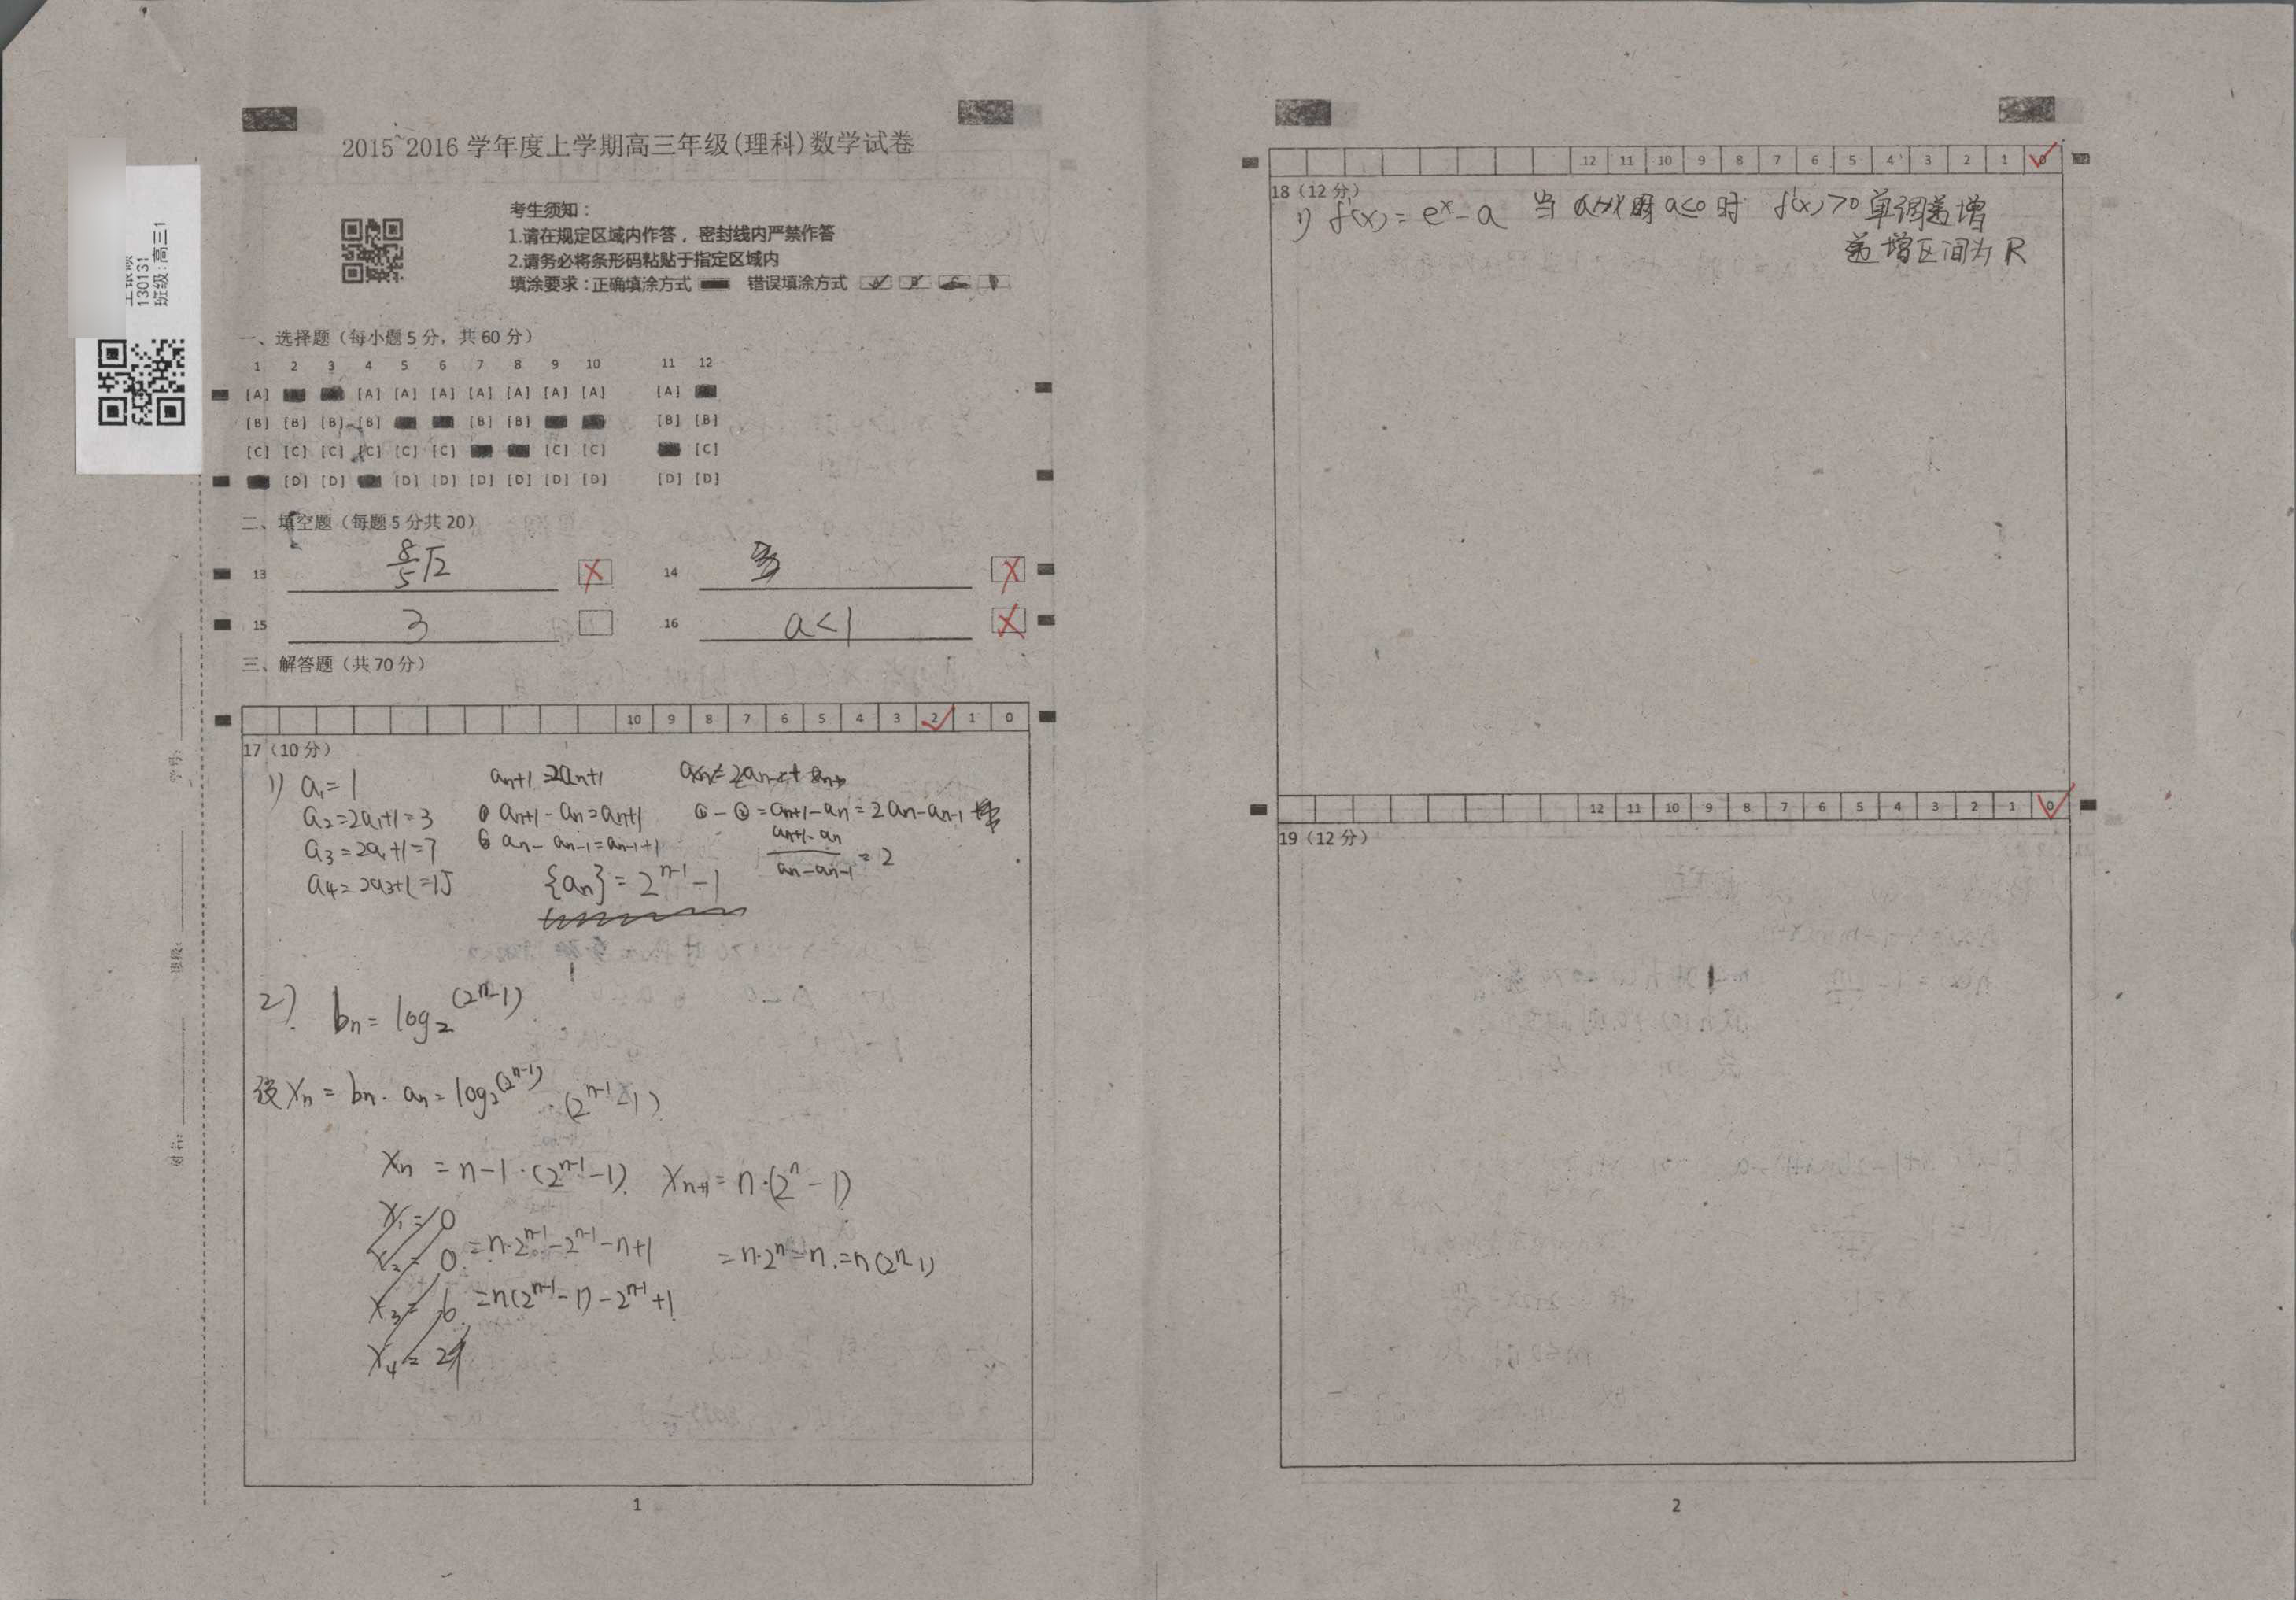 2015~2016 学年度上学期高三年级(理科)数学试卷
130131
班级:高三1
考生须知：
1.请在规定区域内作答，密封线内严禁作答
2.请务必将条形码粘贴于指定区域内
填涂要求：正确填涂方式 错误填涂方式
一、选择题（每小题 5 分，共 60 分）
1 2 3 4 5 6 7 8 9 10 11 12
[A] [A] [A] [A] [A] [A] [A] [A]
[B] [B] [B] [B] [B] [B] [B] [B]
[C] [C] [C] [C] [C] [C] [C] [C] [C]
[D] [D] [D] [D] [D] [D] [D] [D] [D] [D]
二、填空题（每题 5 分共 20）
13 8/5√2 14
15 3 16 a<1
三、解答题（共 70 分）
10 9 8 7 6 5 4 3 2 1 0
17（10 分）
1) a₁=1
a₂=2a₁+1=3
a₃=2a₁+1=7
a₄=2a₃+1=15
aₙ₊₁=2aₙ+1
① aₙ₊₁-aₙ=aₙ+1
② aₙ-aₙ₋₁=aₙ₋₁+1
{aₙ}=2ⁿ⁻¹-1
①-②=aₙ₊₁-aₙ=2aₙ-aₙ₋₁
(aₙ₊₁-aₙ)/(aₙ-aₙ₋₁)=2
2). bₙ=log₂(2ⁿ-1)
设xₙ=bₙ·aₙ=log₂(2ⁿ⁻¹)·(2ⁿ⁻¹-1)
xₙ=n-1·(2ⁿ⁻¹-1). xₙ₊₁=n·(2ⁿ-1)
x₁=0
x₂=0 =n·2ⁿ⁻¹-2ⁿ⁻¹-n+1 =n·2ⁿ-n.=n(2ⁿ-1)
x₃=6 =n(2ⁿ⁻¹-1)-2ⁿ⁻¹+1
x₄=21
学号:
班级:
姓名:
1
12 11 10 9 8 7 6 5 4 3 2 1 0
18（12 分）
1) f'(x)=eˣ-a 当 a≤0时 f'(x)>0 单调递增
递增区间为 R
12 11 10 9 8 7 6 5 4 3 2 1 0
19（12 分）
2